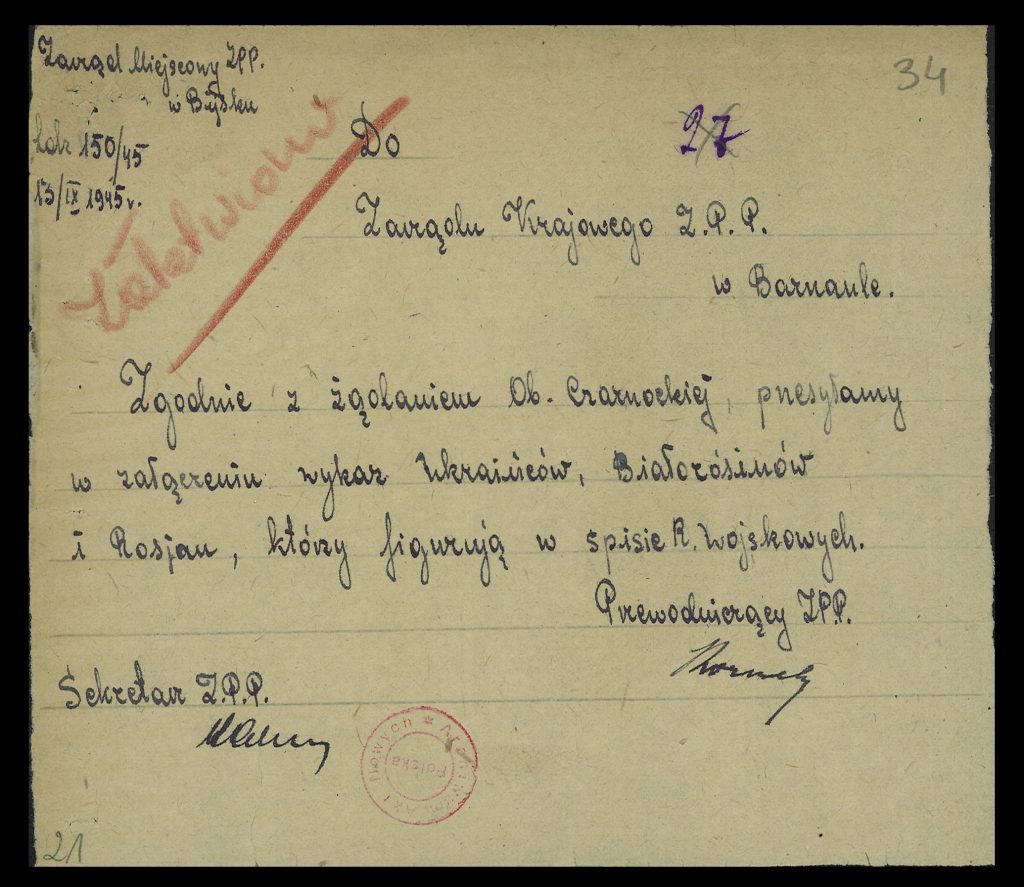 Zarząd Miejscowy Z.P.P.
w Bijsku
Ldz 150/45
13/IX 1945 r.
Załatwiono
34
27
Do
Zarządu Krajowego Z.P.P.
w Barnaule.
Zgodnie z żądaniem Ob. Czarnockiej, przesyłamy
w załączeniu wykaz Ukraińców, Białorósinów
i Rosjan, którzy figurują w spisie R. Wojskowych.
Przewodniczący Z.P.P.
Sekretarz Z.P.P.
Archiwum Akt Nowych *
Polska
21